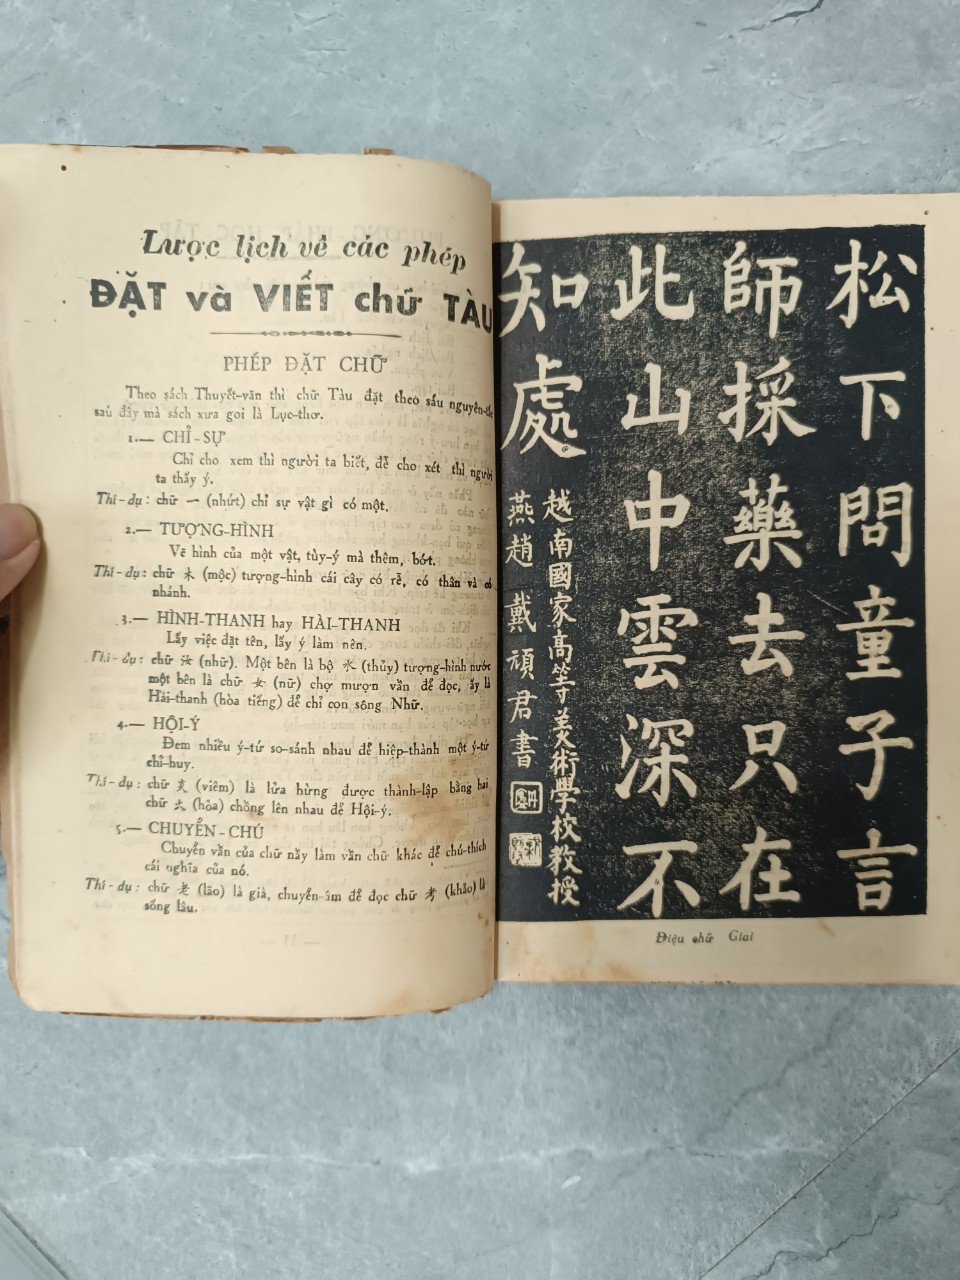 Lược lịch về các phép
ĐẶT và VIẾT chữ TÀU
PHÉP ĐẶT CHỮ
Theo sách Thuyết-văn thì chữ Tàu đặt theo sáu nguyên-tắc
sau đây mà sách xưa gọi là Lục-thơ.
1.— CHỈ-SỰ
Chỉ cho xem thì người ta biết, để cho xét thì người
ta thấy ý.
Thí-dụ: chữ 一 (nhứt) chỉ sự vật gì có một.
2.— TƯỢNG-HÌNH
Vẽ hình của một vật, tùy-ý mà thêm, bớt.
Thí-dụ: chữ 木 (mộc) tượng-hình cái cây có rễ, có thân và có
nhánh.
3.— HÌNH-THANH hay HÀI-THANH
Lấy việc đặt tên, lấy ý làm nên.
Thí-dụ: chữ 汝 (nhữ). Một bên là bộ 水 (thủy) tượng-hình nước
một bên là chữ 女 (nữ) chợ mượn vần để đọc, ấy là
Hài-thanh (hòa tiếng) để chỉ con sông Nhữ.
4.— HỘI-Ý
Đem nhiều ý-tứ so-sánh nhau để hiệp-thành một ý-tứ
chỉ-huy.
Thí-dụ: chữ 炎 (viêm) là lửa hừng được thành-lập bằng hai
chữ 火 (hỏa) chồng lên nhau để Hội-ý.
5.— CHUYỂN-CHÚ
Chuyển vần của chữ nầy làm vần chữ khác để chú-thích
cái nghĩa của nó.
Thí-dụ: chữ 老 (lão) là già, chuyển-âm để đọc chữ 考 (khảo) là
sống lâu.
— 11 —
松下問童子言
師採藥去只在
此山中雲深不
知處
越南國家高等美術學校教授
燕趙 戴頑君書
Điệu chữ Giai